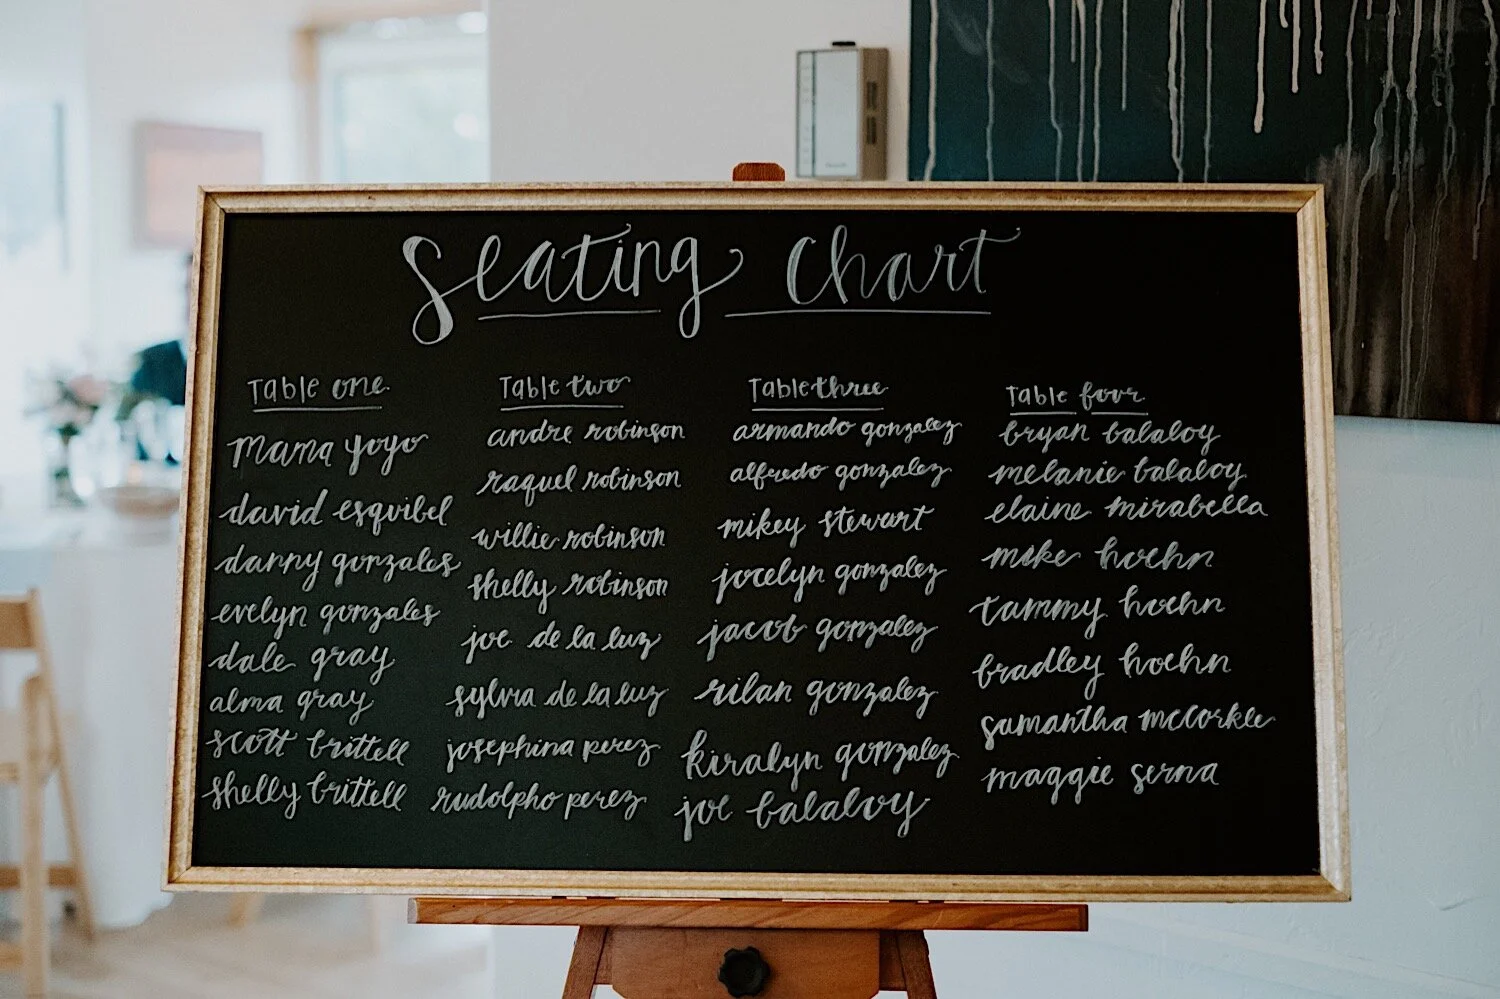 Seating Chart
Table one
mama yoyo
david esquibel
danny gonzales
evelyn gonzales
dale gray
alma gray
scott brittell
shelly brittell
Table two
andre robinson
raquel robinson
willie robinson
shelly robinson
joe de la luz
sylvia de la luz
josephina perez
rudolpho perez
Table three
armando gonzalez
alfredo gonzalez
mikey stewart
jocelyn gonzalez
jacob gonzalez
rilan gonzalez
kiralyn gonzalez
joe balaloy
Table four
bryan balaloy
melanie balaloy
elaine mirabella
mike hoehn
tammy hoehn
bradley hoehn
samantha mccorkle
maggie serna